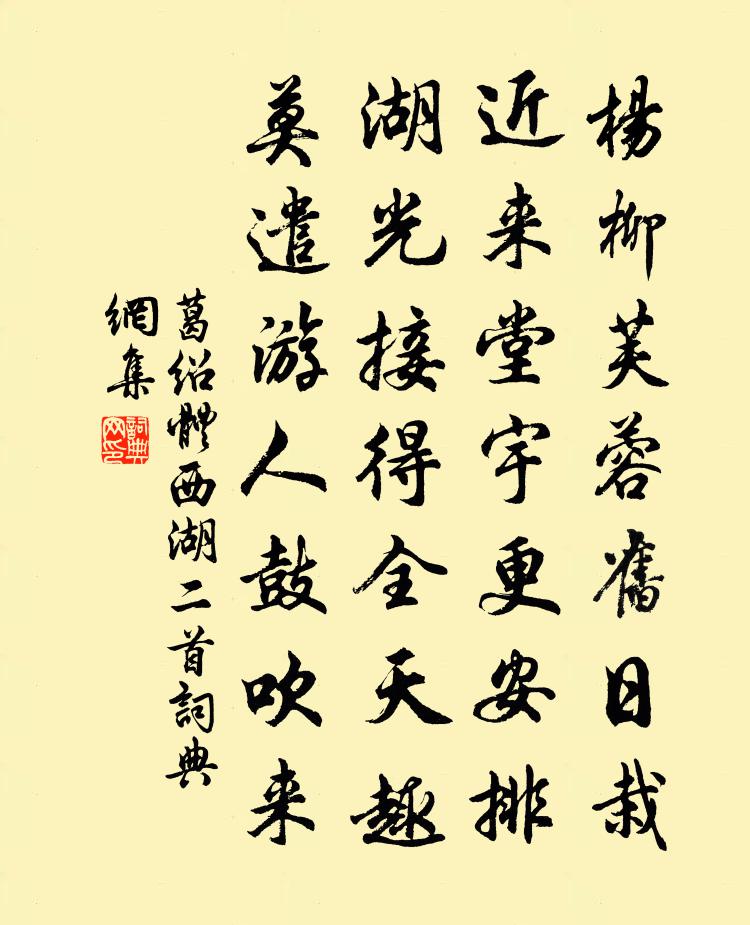 楊柳芙蓉舊日栽
近来堂宇更安排
湖光接得全天趣
莫遣游人鼓吹来
葛紹體西湖二首詞典
網集
詞典
网印